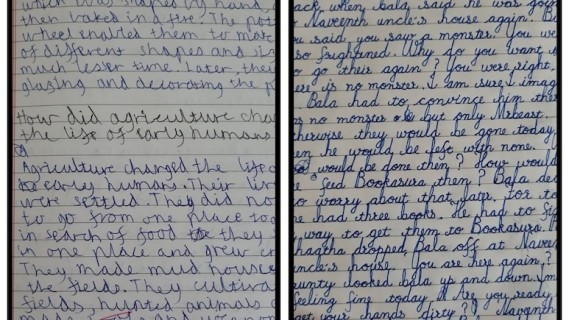 which was shaped by hand,
then baked in fire. The pot
wheel enabled them to make
of different shapes and siz
much lesser time. Later, they
glazing and decorating the p
How did agriculture cha
the life of early humans
Agriculture changed the life o
early humans. Their liv
were settled. They did no
to go from one place to
in search of food they s
in one place and grew c
They made mud house
the fields. They cultiva
fields, hunted animals
ack when Bala said he was goin
Naveenth uncle's house again. Bu
ou said, you saw a monster. You we
so frightened. Why do you want
o go their again? You were right,
ere is no monster. I am sure I imag
Bala had to convince him ther
s no monster but only Mrbeast.
therwise they would be gone today,
en he would be left with none.
would be done then? How would
fed Bookasura then? Bala dec
o worry about that later, for to
e had three books. He had to fig
way, to get them to Bookasura.
hagtha dropped, Bala off at Naveen
uncle's house. You are here again,?
aunty looked bala up and down. m
feeling fine today. Are you ready
get your hands dirty?? Naveenth